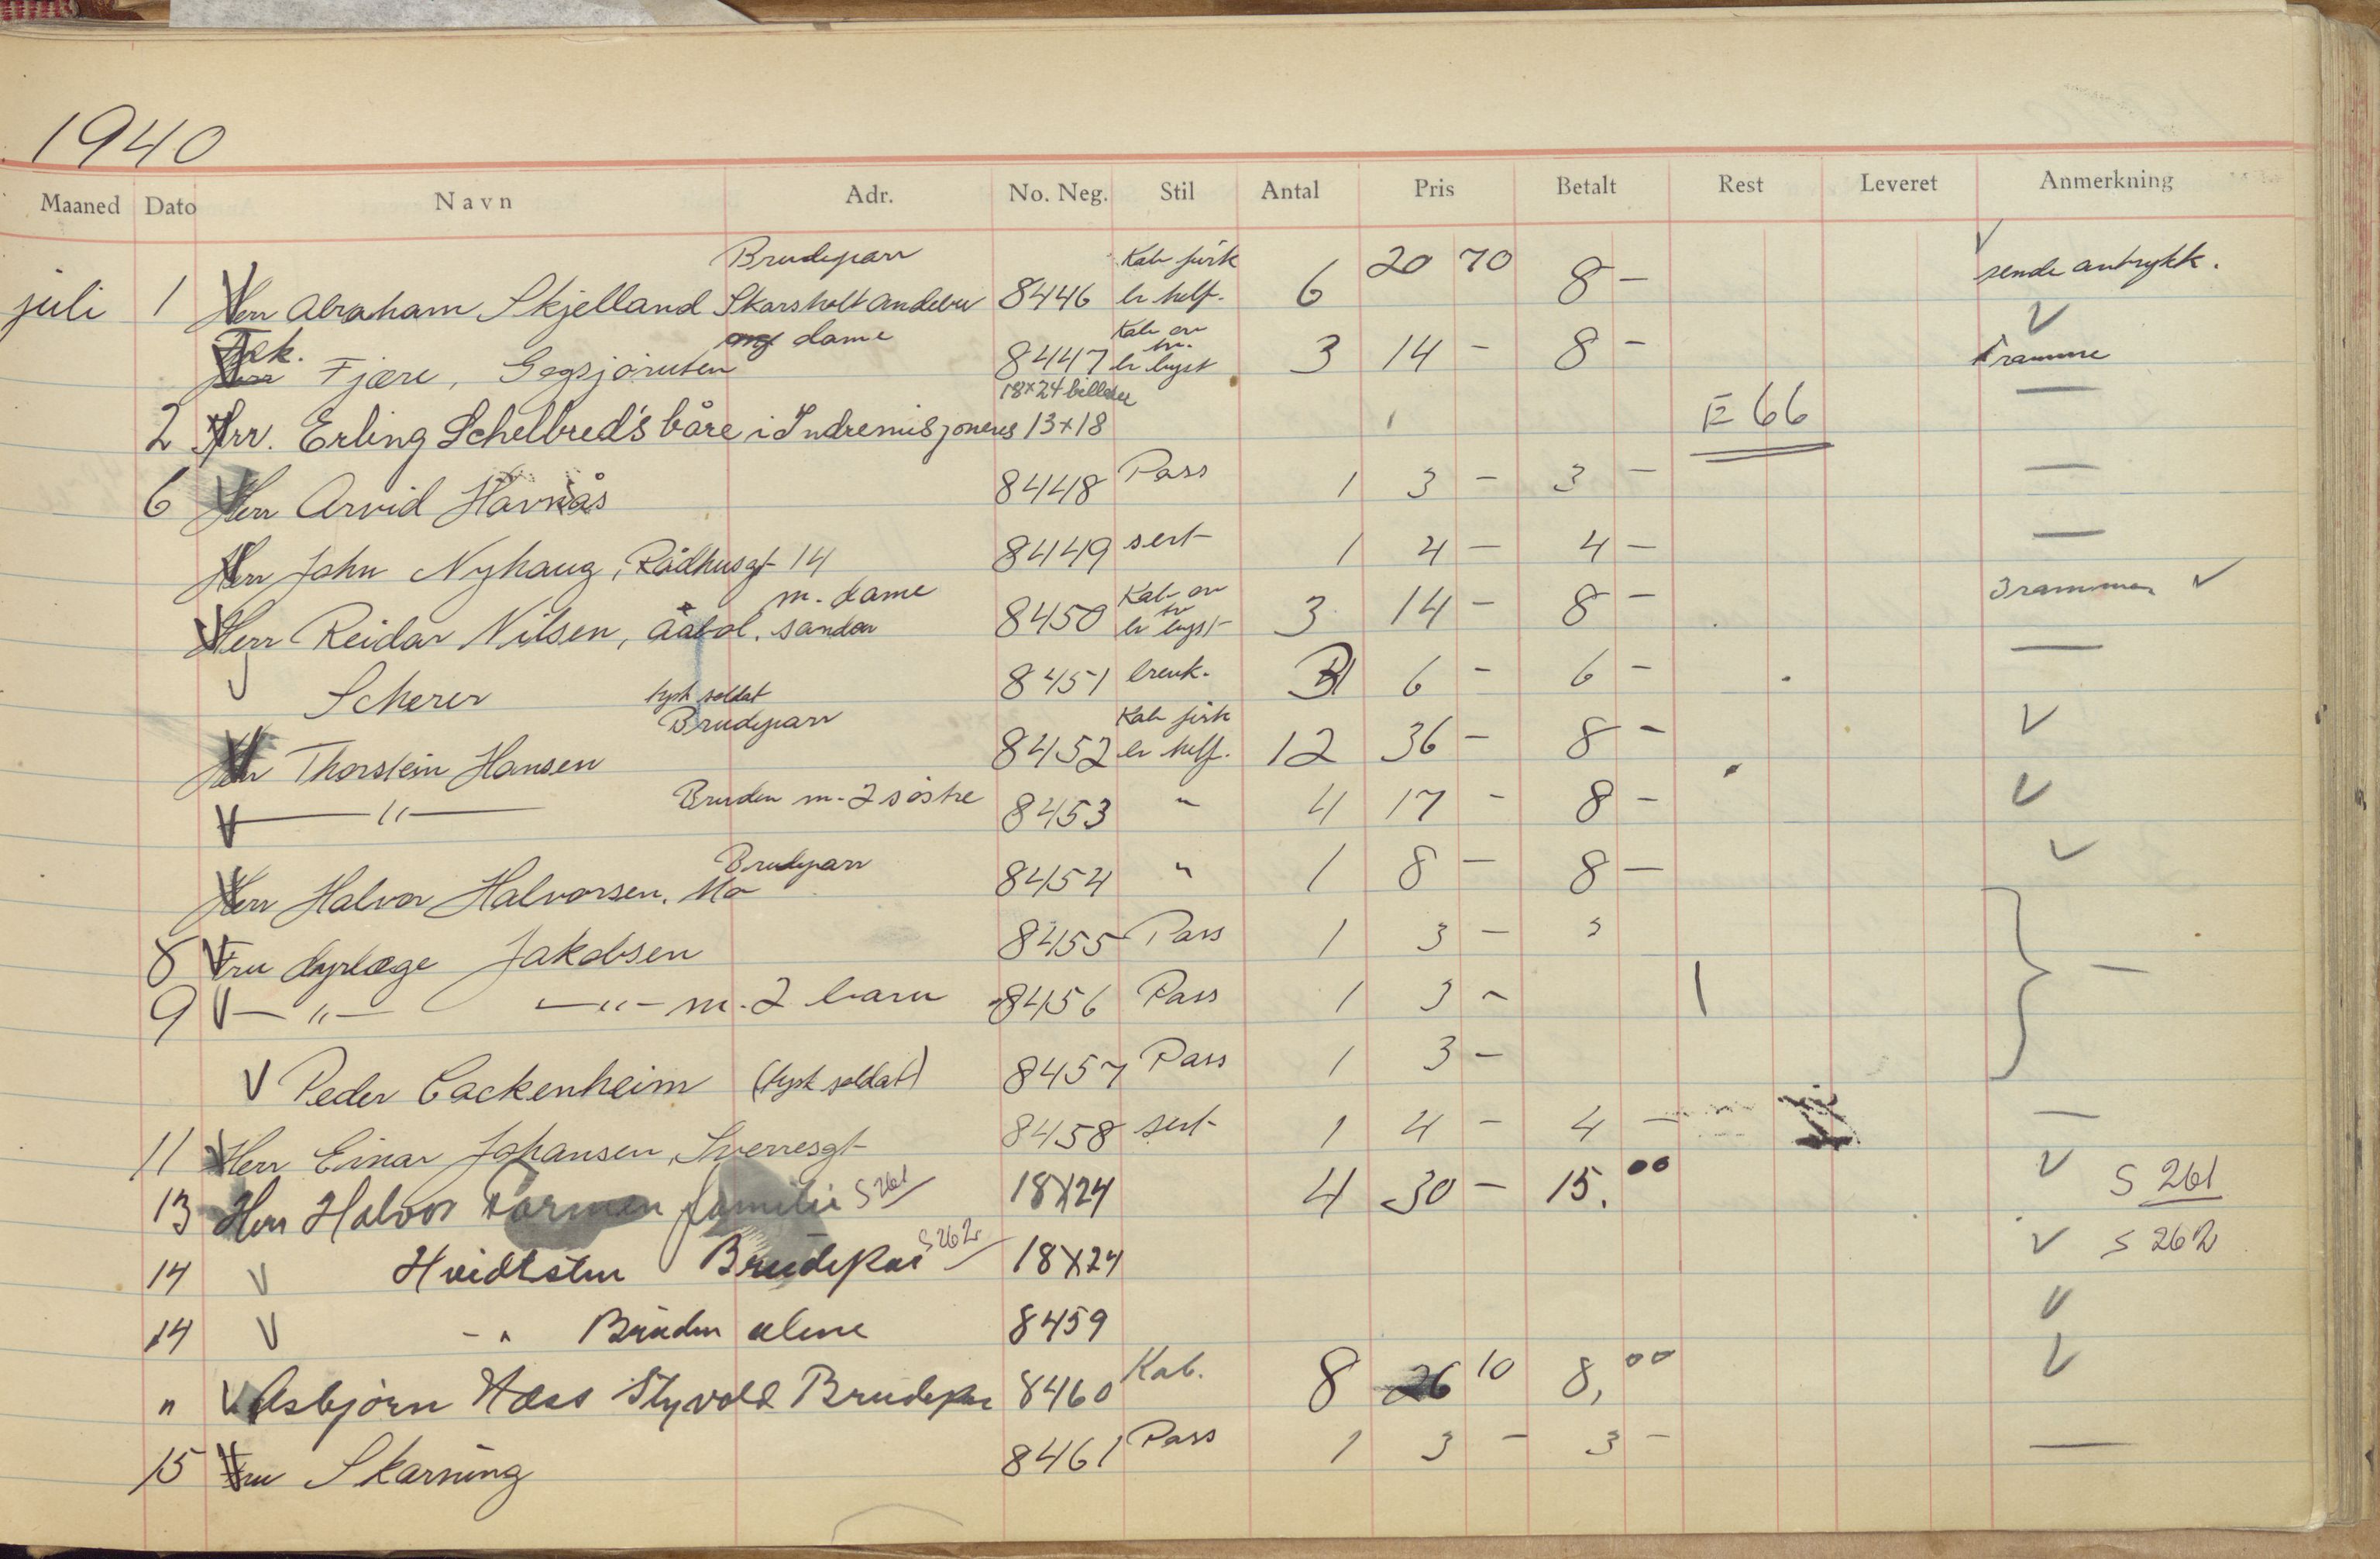 1940
Maaned Dato Navn Adr. No. Neg. Stil Antal Pris Betalt Rest Leveret Anmerkning
Brudeparr Kab firk 20 70 sende avtrykk.
juli 1 Herr Abraham Skjelland Skarsholt Andebu 8446 br helf. 6 8 -
Frk. dame Kab av
Fjære, Gogsjøruten 8447 br byst 3 14 - 8 - 1 ramme
18x24 billeder
2 Hrr. Erling Schelbred's båre i Indremisjonens 13x18 E 66
6 Herr Arvid Havnås 8448 Pass 1 3 - 3 -
Herr John Nyhaug, Rådhusgt 14 8449 sert 1 4 - 4 -
m. dame Kab av
Herr Reidar Nilsen, sandar 8450 br byst 3 14 - 8 - 3 rammer
Scherer tysk soldat 8451 brevk. 6 - 6 -
Brudeparr Kab firk
Herr Thorstein Hansen 8452 br helf. 12 36 - 8 -
— " — Bruden m. 2 søstre 8453 " 4 17 - 8 -
Brudeparr
Herr Halvor Halvorsen, Mo 8454 " 1 8 - 8 -
8 Fru dyrlæge Jakobsen 8455 Pass 1 3 - 3
9 — " — — " — m. 2 barn 8456 Pass 1 3 -
Peder Cackenheim (tysk soldat) 8457 Pass 1 3 -
11 Herr Einar Johansen, Sverresgt 8458 sert 1 4 - 4 -
13 Herr Halvor Formen familie S 261 18X24 4 30 - 15.00 S 261
14 Hvidtsten Brudepar S 262 18X24 S 262
14 - " Bruden alene 8459
" Asbjørn Hæss Styvold Brudepar 8460 Kab. 8 26 10 8,00
15 Fru Skarning 8461 Pass 1 3 - 3 -